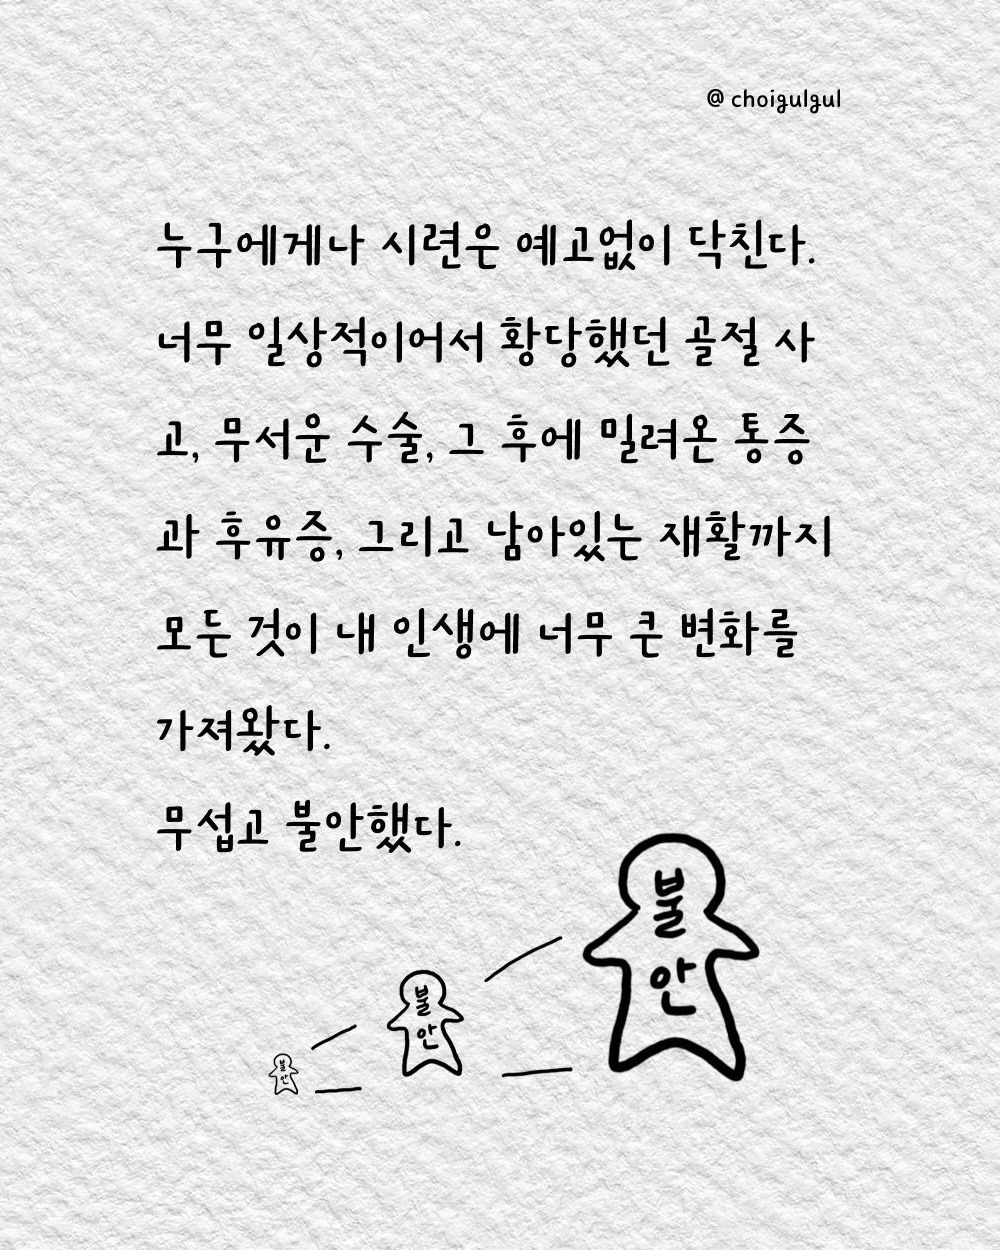 @ choigulgul
누구에게나 시련은 예고없이 닥친다.
너무 일상적이어서 황당했던 골절 사
고, 무서운 수술, 그 후에 밀려온 통증
과 후유증, 그리고 남아있는 재활까지
모든 것이 내 인생에 너무 큰 변화를
가져왔다.
무섭고 불안했다.
불
안
불
안
불
안